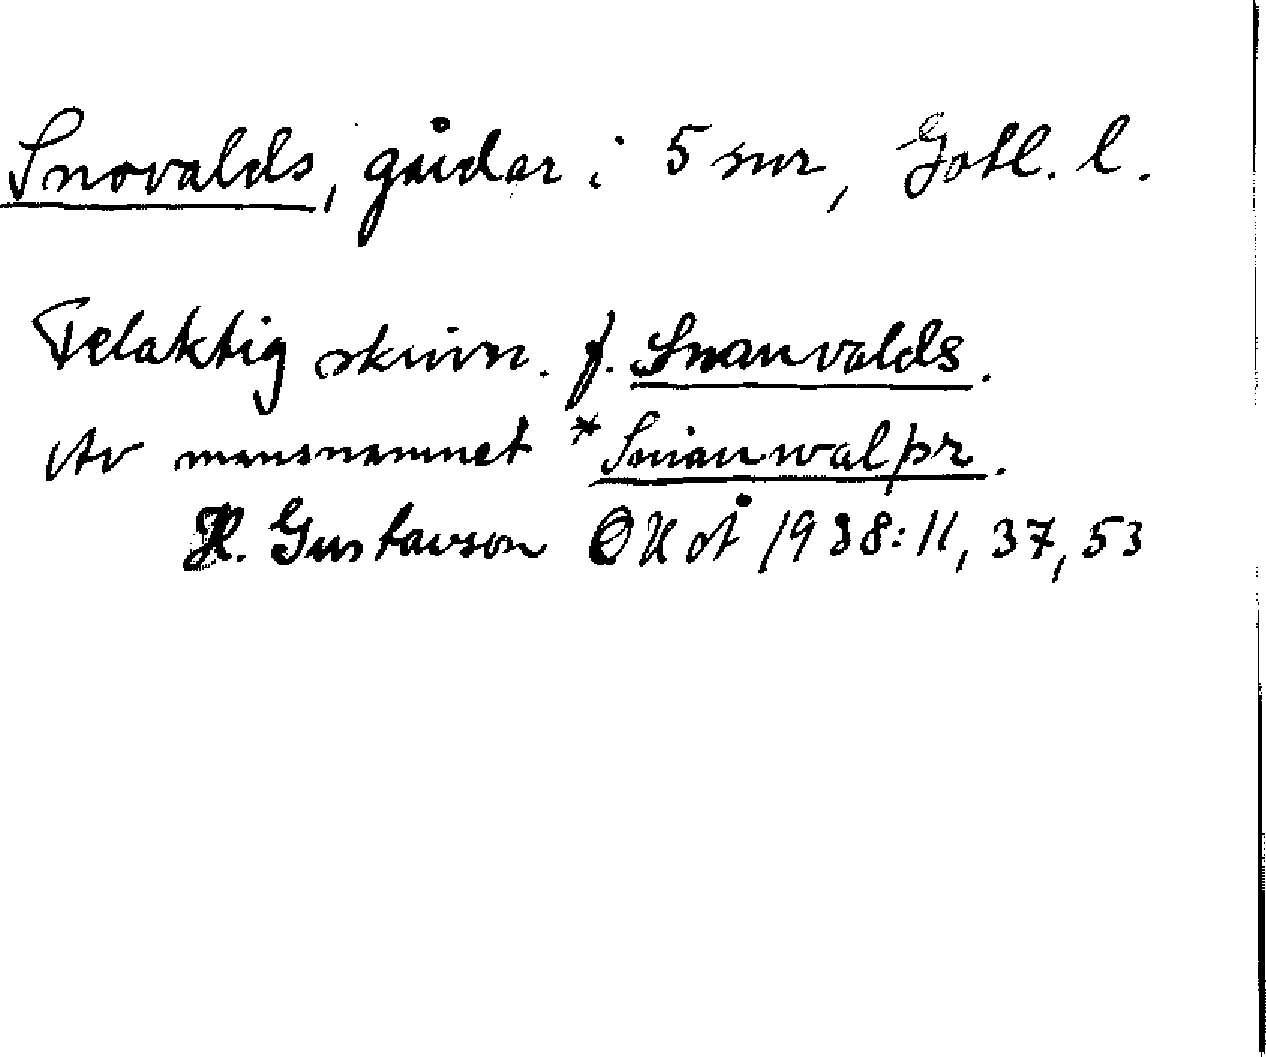 Snovalds, gårdar i 5 snr, Gotl. l.
Felaktig skrivn. f. Snauvalds.
Av mansnamnet *Sniauwalþr.
H. Gustavson OUoÅ 1938: 11, 37, 53